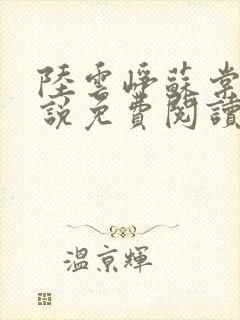 陸雲崢蘇棠
說免費閱讀
溫京輝